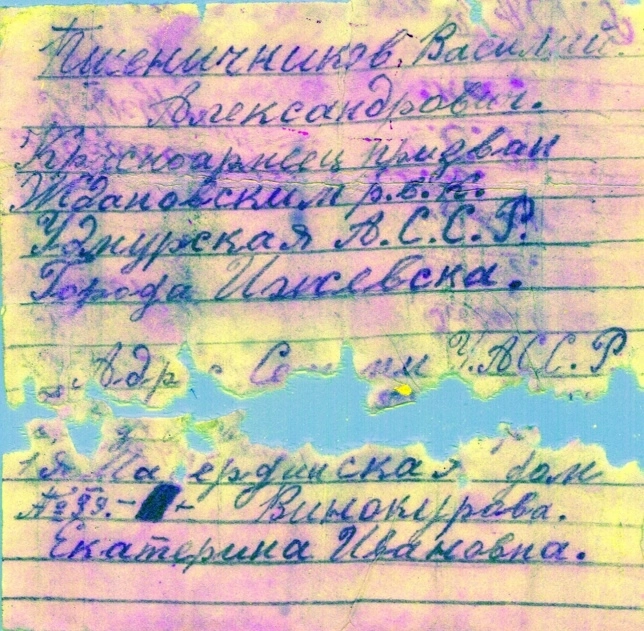 Пшеничников, Василий.
Александрович.
Красноармеец призван
Ждановским р.в.к.
Удмурская А.С.С.Р.
Города Ижевска.
У.АСС.Р
ская дом
№ 99.
Винокурава.
Екатерина Ивановна.